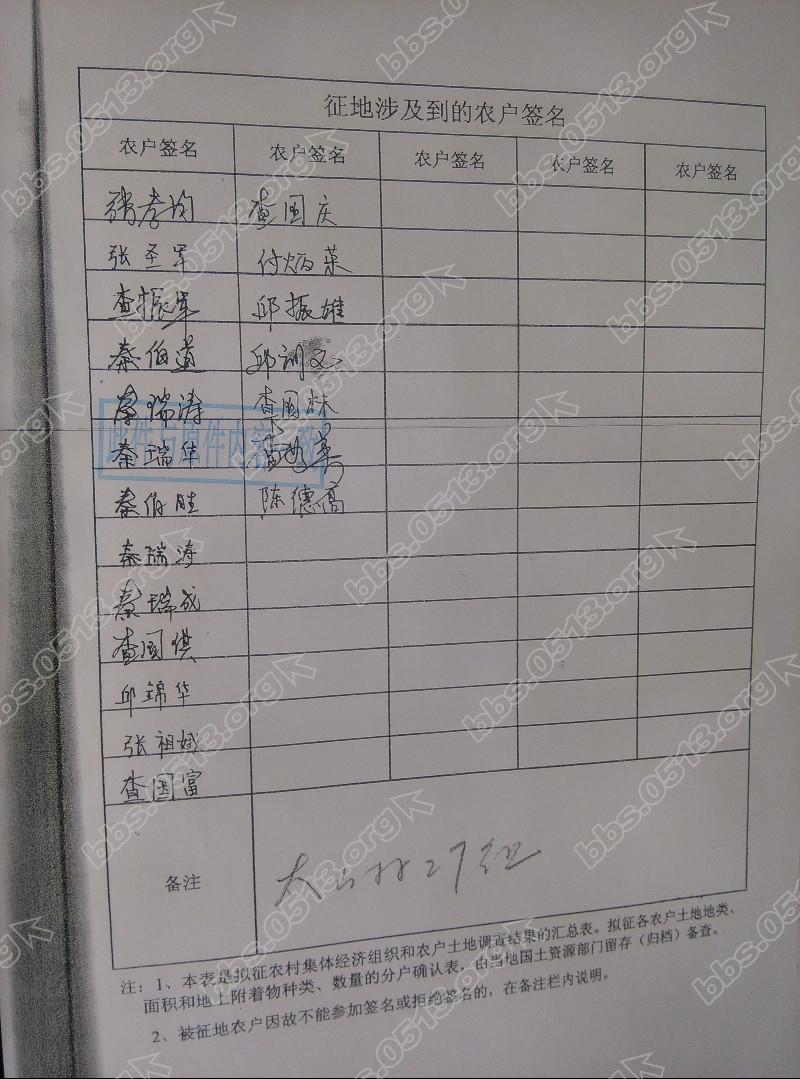 征地涉及到的农户签名
农户签名 农户签名 农户签名 农户签名 农户签名
张孝均 查国庆
张圣军 付炳菜
查振军 邱振雄
秦伯道 邱训
秦瑞涛 查国林
此件与原件内容一致
秦瑞华
秦伯胜 陈德高
秦瑞涛
秦瑞成
查国祺
邱锦华
张祖斌
查国富
备注 27组
注：1、本表是拟征农村集体经济组织和农户土地调查结果的汇总表。拟征各农户土地地类、
面积和地上附着物种类、数量的分户确认表，由当地国土资源部门留存（归档）备查。
2、被征地农户因故不能参加签名或拒绝签名的，在备注栏内说明。
bbs.0513.org